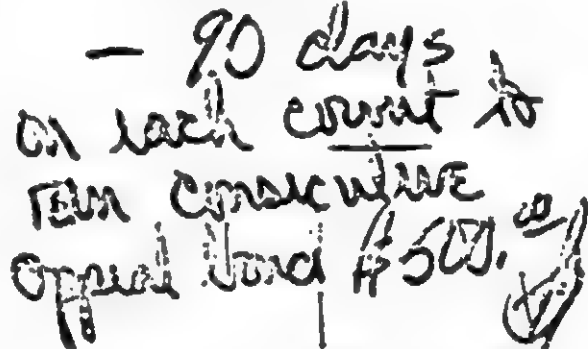 — 90 days
on each count to
run consecutive
appeal bond $500.00